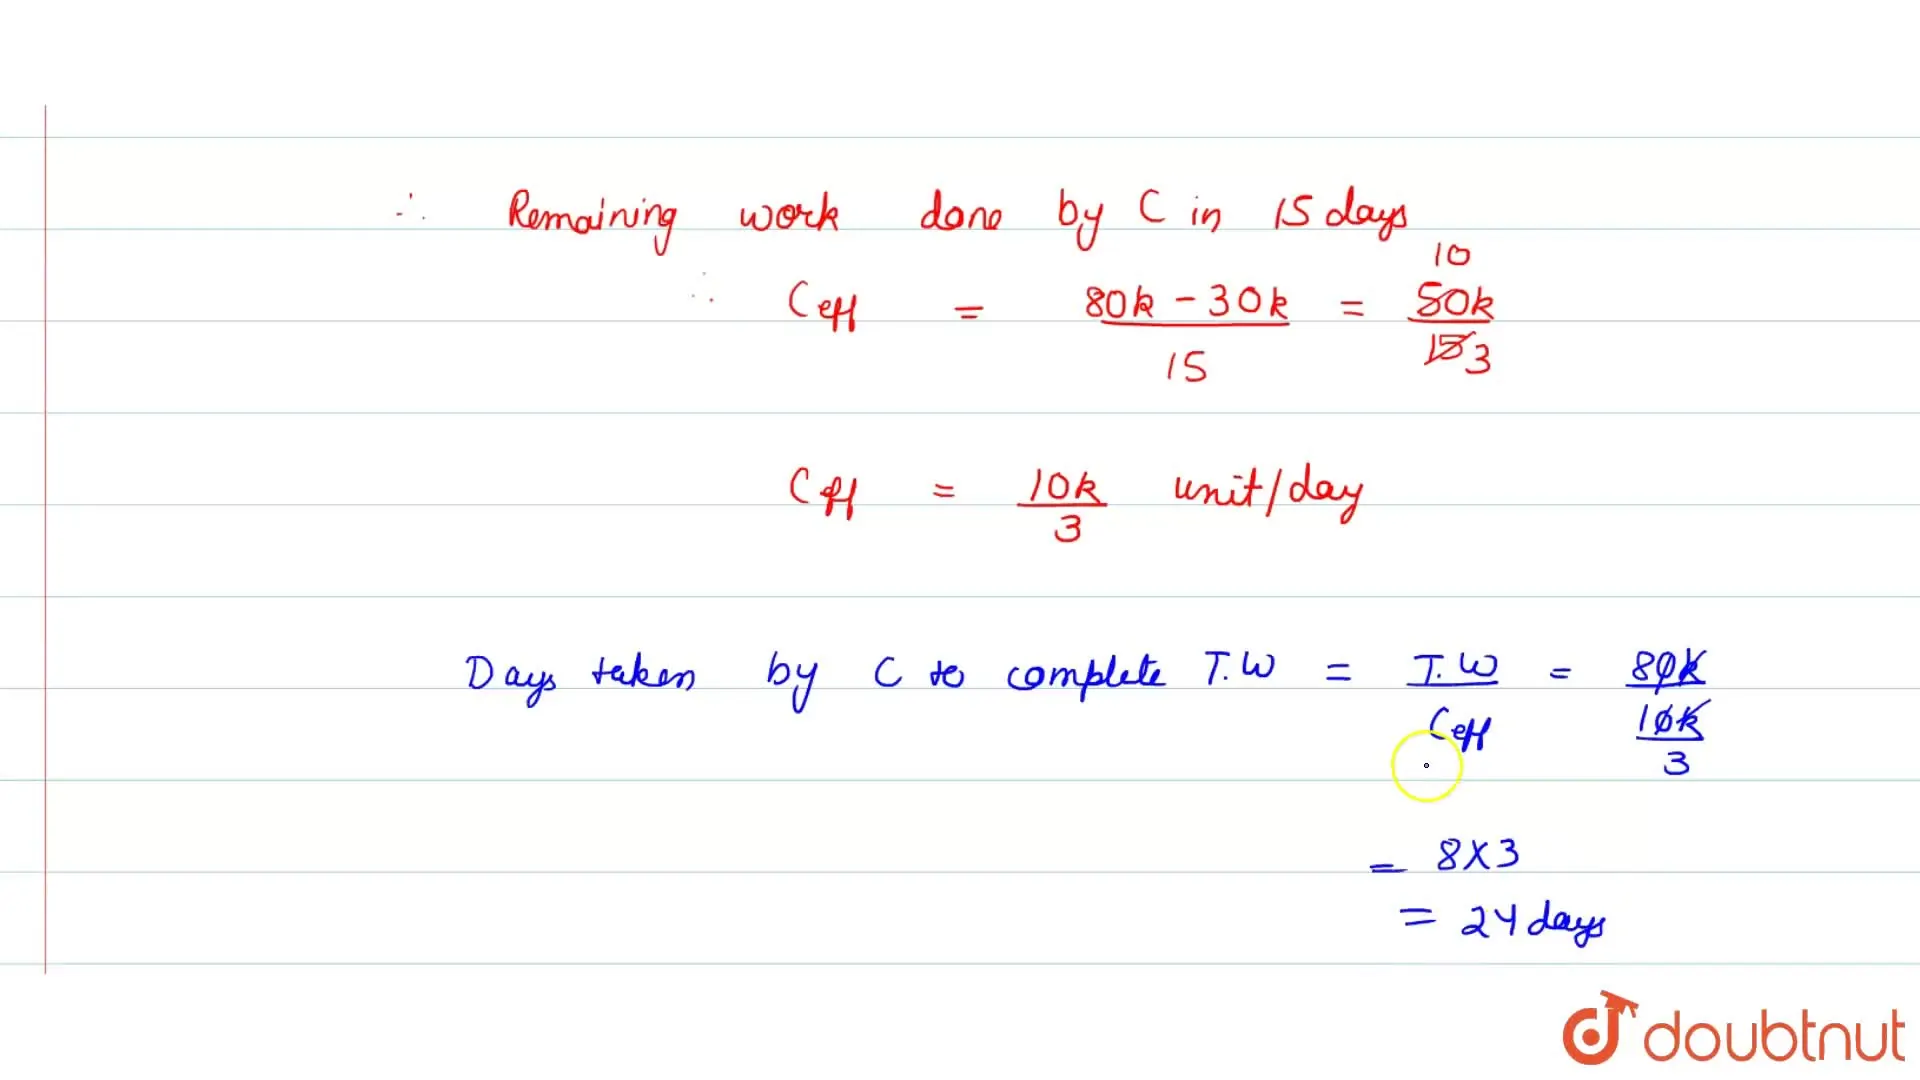 ∴ Remaining work done by C in 15 days
∴ Ceff = 80k - 30k / 15 = 50k / 15 10 3
Ceff = 10k / 3 unit/day
Days taken by C to complete T.W = T.W / Ceff = 80k / 10k / 3
= 8x3
= 24 days
doubtnut